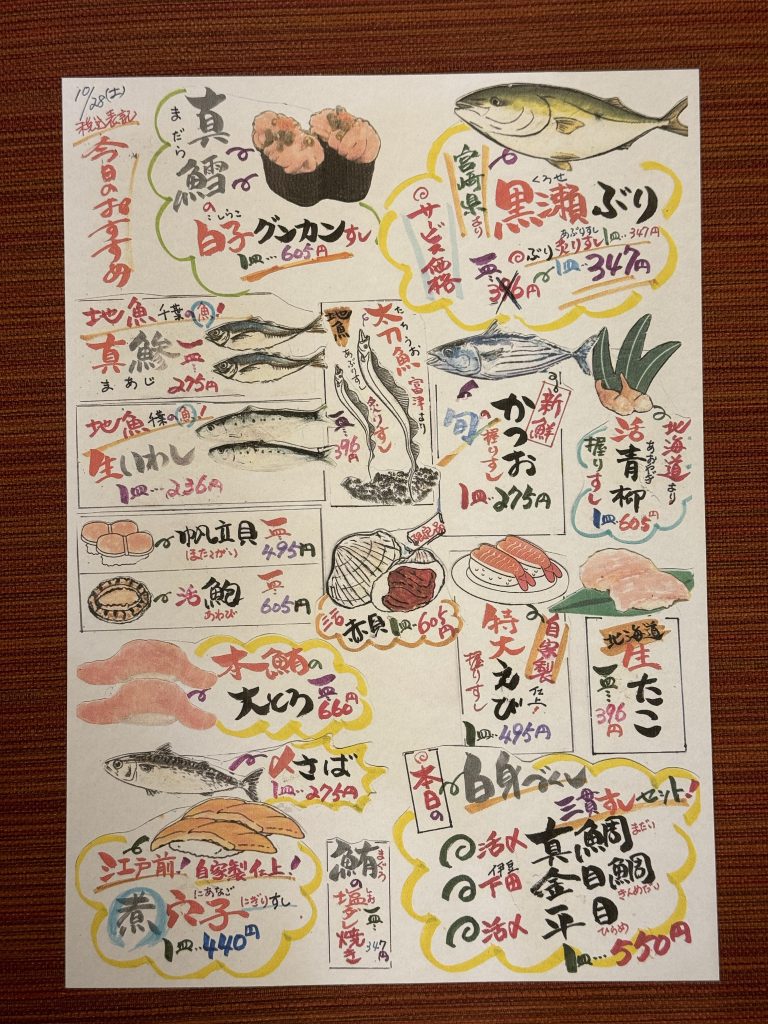 10/28(土)
税込表記
今日のおすすめ
まだら
真鱈の
しらこ
白子グンカンすし
1皿…605円
宮崎県より
くろせ
黒瀬ぶり
サービス価格
あぶりすし
ぶり炙りすし1皿…347円
一皿…396円
1皿…347円
地魚千葉の魚!
真鯵
まあじ
一皿…275円
地魚千葉の魚!
生いわし
1皿…236円
地魚
たちうお
太刀魚
富津より
あぶりすし
炙りすし
一皿…396円
新鮮
旬の
かつお
握りすし
1皿…275円
北海道より
活青柳
あおやぎ
握りすし
1皿…605円
帆立貝
ほたてがい
一皿…495円
活鮑
あわび
一皿…605円
限定品
活赤貝1皿…605円
自家製仕上!
特大えび
握りすし
1皿…495円
北海道
生たこ
一皿…396円
本鮪の
大とろ
一皿…660円
〆さば
1皿…275円
本日の
白身づくし
三貫すしセット!
活〆
真鯛
まだい
伊豆
下田
金目鯛
きんめだい
活〆
平目
ひらめ
1皿…550円
江戸前!自家製仕上!
にあなご
煮穴子にぎりすし
1皿…440円
まぐろ
鮪の
しお
塩ダレ焼き
一皿…347円